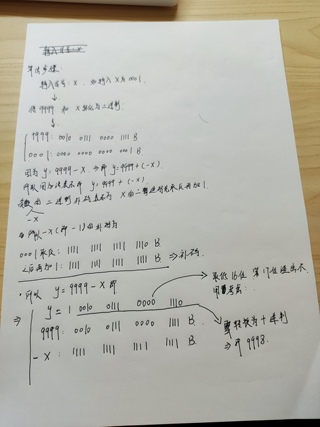 算法步骤:
输入信号: X, 如输入 X为 0001.
↓
将 9999 和 X 转化为二进制
↓
9999: 0010 0111 0000 1111 B
0001: 0000 0000 0000 0001 B
因为 y = 9999 - X ⇒ 即 y = 9999 + (-X)
y = 9999 + (-X)
-X
-X (即 -1) 的补码为
0001取反: 1111 1111 1111 1110 B
之后再加1: 1111 1111 1111 1111 B ⇒ 补码.
所以 y = 9999 - X 即
取低 16 位 第17位溢出不用考虑.
⇒ y = 1 0010 0111 0000 1110
9999: 0010 0111 0000 1111 B
-X: 1111 1111 1111 1111 B.
转换为十进制
⇒ 即 9998.